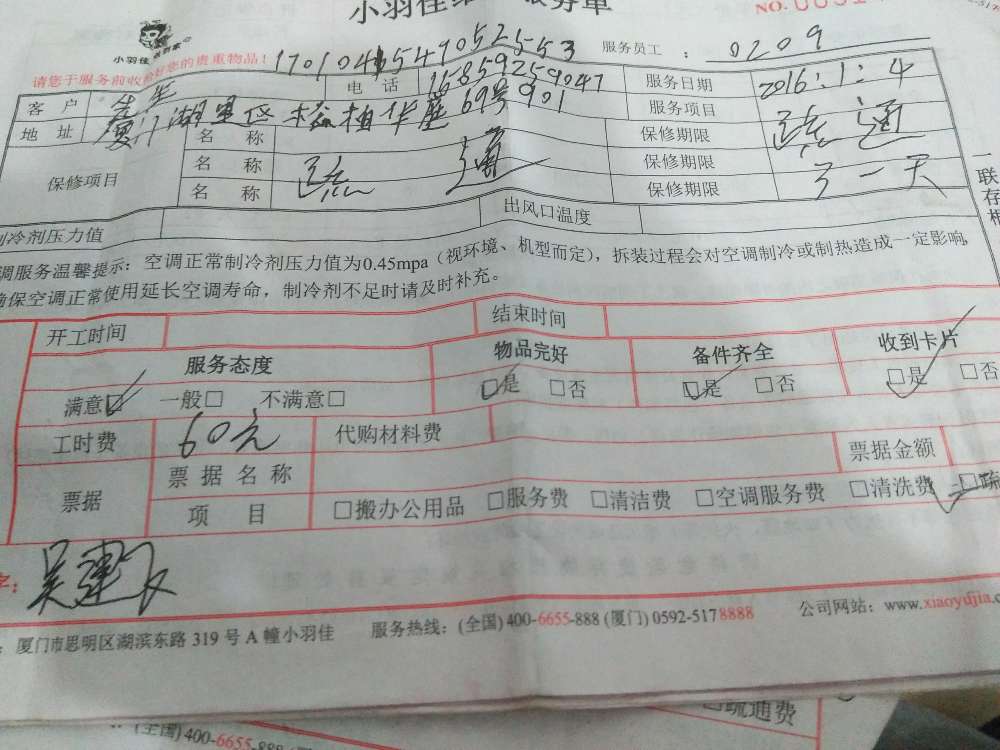 小羽佳 服务单
NO.
小羽佳
请您于服务前收检好您的贵重物品!
服务员工 : 0209
客户 先生 电话 服务日期 2016:1:4
地址 厦门湖里区 华庭69号901 服务项目 疏通
保修项目 名称 保修期限
名称 疏通 保修期限
名称 保修期限 一天
制冷剂压力值 出风口温度
调服务温馨提示:空调正常制冷剂压力值为0.45mpa(视环境、机型而定),拆装过程会对空调制冷或制热造成一定影响,
确保空调正常使用延长空调寿命,制冷剂不足时请及时补充。
一联存根
开工时间 结束时间
服务态度 物品完好 备件齐全 收到卡片
满意☑ 一般□ 不满意□ ☑是 □否 ☑是 □否 ☑是 □否
工时费 60元 代购材料费
票据 票据名称 票据金额
项目 □搬办公用品 □服务费 □清洁费 □空调服务费 □清洗费 ☑疏
字: 吴建
: 厦门市思明区湖滨东路 319 号 A 幢小羽佳 服务热线: (全国) 400-6655-888 (厦门) 0592-5178888 公司网站: www.xiaoydjia.c
(全国)400-6655-888 (厦
□疏通费